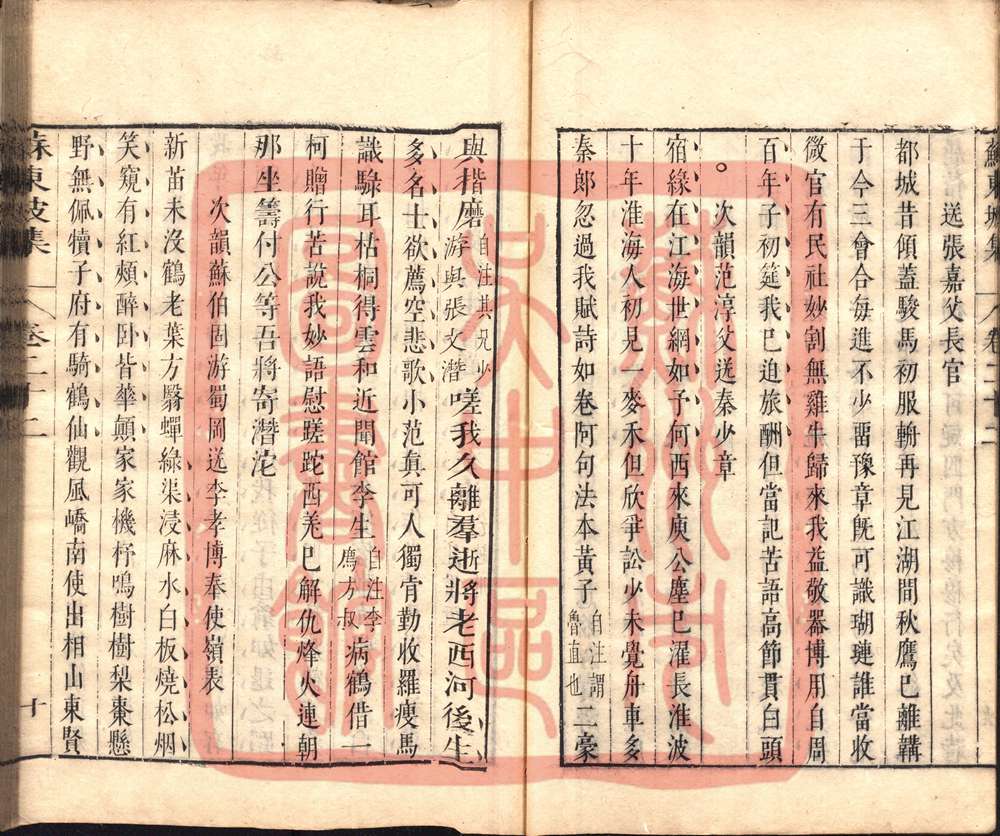 蘇東坡集 卷二十二
送張嘉父長官
都城昔傾蓋駿馬初服輈再見江湖間秋鷹已離韝
于今三會合每進不少畱豫章旣可識瑚璉誰當收
微官有民社妙割無雞牛歸來我益敬器博用自周
百年子初筵我已迫旅酬但當記苦語高節貫白頭
次韻范淳父送秦少章
宿緣在江海世網如予何西來庾公塵已濯長淮波
十年淮海人初見一麥禾但欣爭訟少未覺舟車多
秦郎忽過我賦詩如卷阿句法本黃子自注謂魯直也二豪
與揩磨自注其兄少游與張文潛嗟我久離羣逝將老西河後生
多名士欲薦空悲歌小范真可人獨肯勤收羅瘦馬
識騄耳枯桐得雲和近聞館李生自注李廌方叔病鶴借一
柯贈行苦說我妙語慰蹉跎西羌已解仇烽火連朝
那坐籌付公等吾將寄潛沱
次韻蘇伯固游蜀岡送李孝博奉使嶺表
新苗未沒鶴老葉方翳蟬綠渠浸麻水白板燒松烟
笑窺有紅頰醉臥皆華顛家家機杼鳴樹樹梨棗懸
野無佩犢子府有騎鶴仙觀風嶠南使出相山東賢
蘇東坡集 卷二十二 十